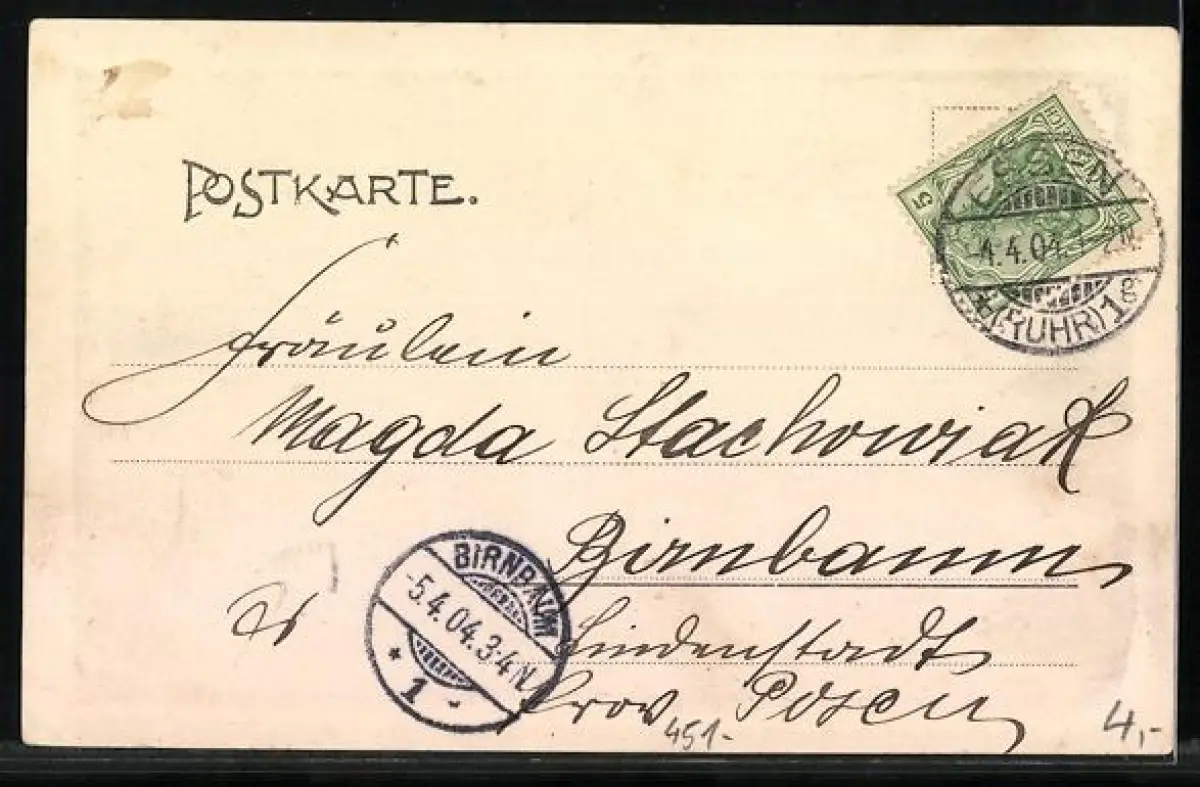 POSTKARTE.
5
ESSEN
-4.4.04.
(RUHR) 1g
Fräulein
Magda Stachowiak
Birnbaum
Lindenstadt
Prov Posen
BIRNBAUM
-5.4.04.3-4N.
* 1 -
451-
4,-